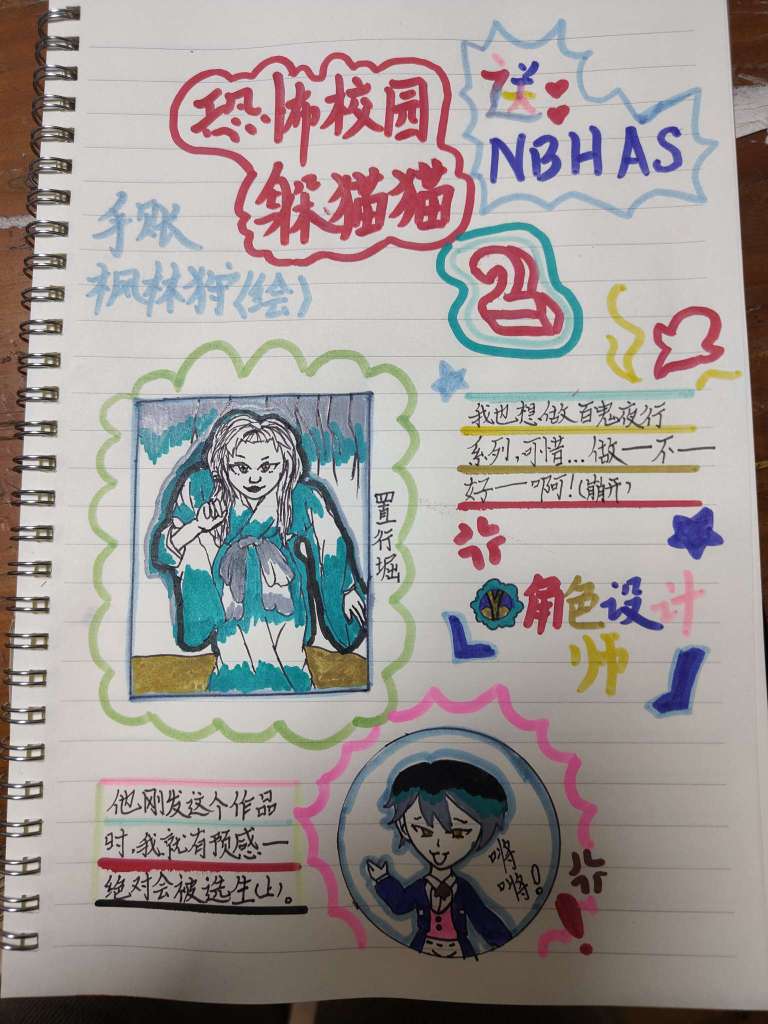 恐怖校园
躲猫猫
送:
NBHAS
手账
枫林狩(绘)
2
我也想做百鬼夜行
系列,可惜...做一不一
好一啊!(崩开)
置行堀
角色设计
师
他刚发这个作品
时,我就有预感一
绝对会被选生(上)。
嘚
嘚!